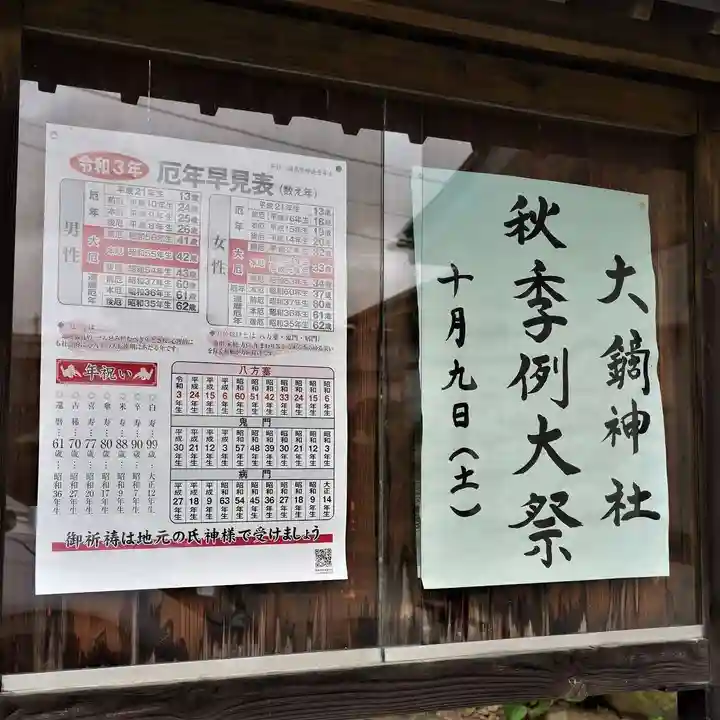 令和3年
厄年早見表(数え年)
男性
厄年
平成21年生 13歳
前厄 平成10年生 24歳
本厄 平成9年生 25歳
後厄 平成8年生 26歳
大厄
前厄 昭和56年生 41歳
本厄 昭和55年生 42歳
後厄 昭和54年生 43歳
還暦厄年
前厄 昭和37年生 60歳
本厄 昭和36年生 61歳
後厄 昭和35年生 62歳
女性
厄年
平成21年生 13歳
前厄 平成16年生 18歳
本厄 平成15年生 19歳
後厄 平成14年生 20歳
大厄
34歳
37歳
還暦厄年
前厄 昭和37年生 60歳
本厄 昭和36年生 61歳
後厄 昭和35年生 62歳
年祝い
白寿…99歳…大正12年生
卒寿…90歳…昭和7年生
米寿…88歳…昭和9年生
傘寿…80歳…昭和17年生
喜寿…77歳…昭和20年生
古稀…70歳…昭和27年生
還暦…61歳…昭和36年生
八方塞
令和3年生 平成24年生 平成15年生 平成6年生 昭和60年生 昭和51年生 昭和42年生 昭和33年生 昭和24年生 昭和15年生 昭和6年生
鬼門
平成30年生 平成21年生 平成12年生 平成3年生 昭和57年生 昭和48年生 昭和39年生 昭和30年生 昭和21年生 昭和12年生 昭和3年生
病門
平成27年生 平成18年生 平成9年生 昭和63年生 昭和54年生 昭和45年生 昭和36年生 昭和27年生 昭和18年生 昭和9年生 大正14年生
御祈祷は地元の氏神様で受けましょう
大鏑神社
秋季例大祭
十月九日(土)